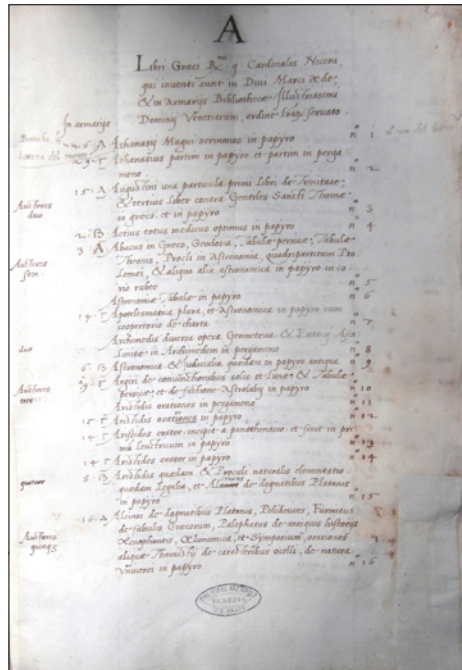 A
Libri Graeci R.mi q. Cardinalis Niceni,
qui inventi sunt in Divi Marci æde
& in Armarijs Bibliothecæ Illustrissimi
Dominij Venetiarum, ordine servato
In armarijs
A Athanasij Magni sermones in papyro n° 1
Athanasius partim in papyro et partim in perga=
meno 2
15. A Augustini una particula primi Libri de Trinitate;
& tertius Liber contra Gentiles Sancti Thomæ
in græco, et in papyro n° 3
Auctores
duo
2. B Aetius totus medicus optimus in papyro n° 4
3 A Abacus in Græco, Tabulæ persicæ, Tabulæ
Theonis, Procli in Astronomia, quadripartitum Pto
lomei, & aliqua alia astronomica in papyro in co
rio rubeo n° 5
Auctores
sex
Astronomiæ Tabulæ in papyro n° 6
14. Γ Apotelesmatica plura, et Astronomica in papyro cum
coopertorio de charta n° 7
Archimedis diversa opera Geometriæ & Eutocij Asca
lonitæ in Archimedem in pergameno n° 8
duo
6 B Astronomica & Judicialia quædam in papyro antiqua n° 9
9. Γ Argiri de coniunctionibus solis et Lunæ & Tabulæ
persicæ; et de Astrolabij in papyro n° 10
Auctores
tres
Aristidis orationes in pergameno n° 11
15 Γ Aristidis orationes in papyro n° 12
14 Γ Aristides orator incipit a panathenaico et finit in pri
ma Leuctricum in papyro n° 13
14 Γ Aristides orator in papyro n° 14
8 B Aristidis quædam, & Procli naturalis elementatio
quædam Legalia, et de dogmatibus Platonis
in papyro n° 15
quatuor
16 A Alcinous de dogmatibus Platonis, Polideuces, Furnutus
de fabulis Græcorum, Palephatus de antiquis historijs
Xenophontis, Œconomica, et Symposium, orationes
aliquæ Themistij de ocelli, de natura
Universi in papyro n° 16
Auctores
quinq;